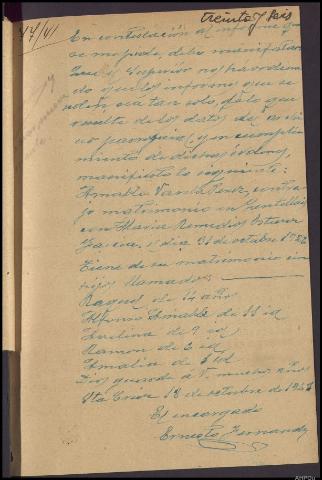 treinta y seis
47/VI
En contestación al informe q
se me pide, debo manifestar
Superior nos ha ordena
do que los informes que se
den, sea tan solo, de lo que
resulta de los datos del archi
vo parroquial, y en cumpli
miento de dichas ordenes,
manifiesto lo siguiente:
Amable contra
jo matrimonio en
con Maria Remedios
el dia 21 de octubre 192
Tiene de su matrimonio cin
hijos llamados
Raquel de 14 años
Alfonso Amable de 11 id
de 9 id
Ramon de 6 id
Amalia de id
Dios guarde a V. muchos años
Sta Cruz 18 de octubre de 19
El encargado
Ernesto Fernandez
AHPOu